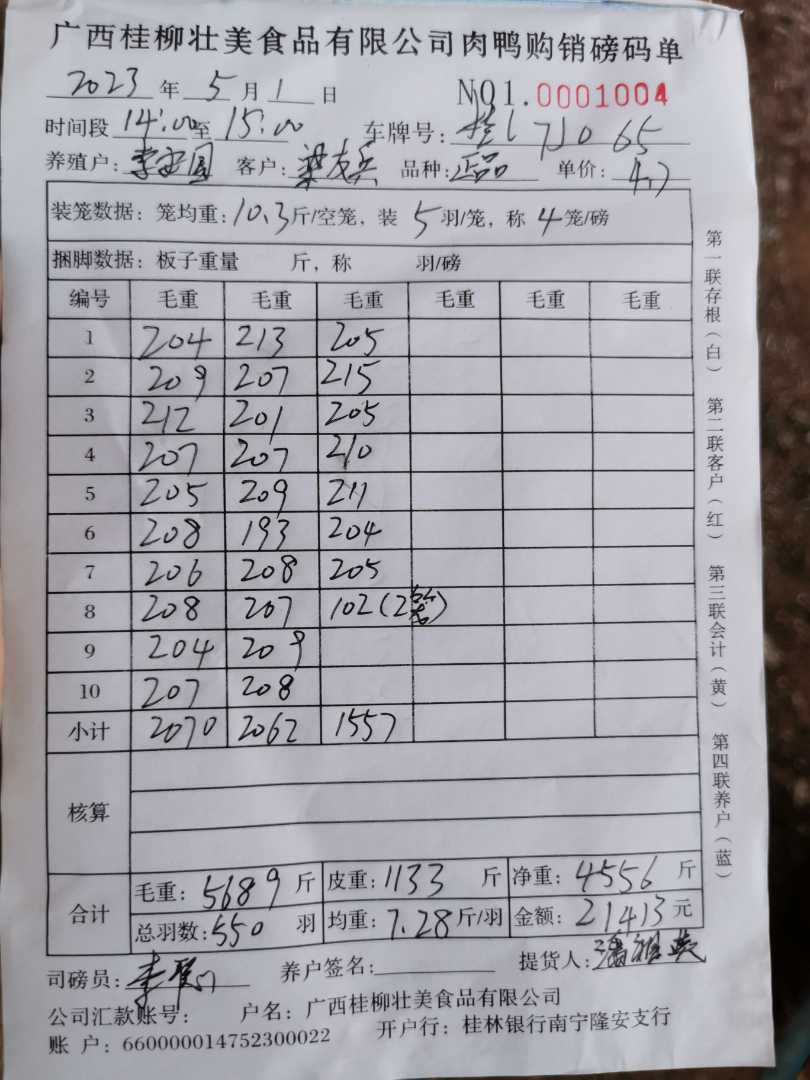 广西桂柳壮美食品有限公司肉鸭购销磅码单
2023 年 5 月 1 日 NO1.0001004
时间段 14:00 至 15:00 车牌号: 065
养殖户: 客户: 梁友兵 品种: 正品 单价: 4.7
装笼数据: 笼均重: 10.3 斤/空笼, 装 5 羽/笼, 称 4 笼/磅
捆脚数据: 板子重量 斤, 称 羽/磅
编号 毛重 毛重 毛重 毛重 毛重 毛重
1 204 213 205
2 209 207 215
3 212 201 205
4 207 207 210
5 205 209 211
6 208 193 204
7 206 208 205
8 208 207 102(2笼)
9 204 209
10 207 208
小计 2070 2062 1557
核算
合计
毛重: 5689 斤 皮重: 1133 斤 净重: 4556 斤
总羽数: 550 羽 均重: 7.28 斤/羽 金额: 21413 元
司磅员: 李 养户签名: 提货人: 潘
公司汇款账号: 户名: 广西桂柳壮美食品有限公司
账 户: 660000014752300022 开户行: 桂林银行南宁隆安支行
第一联存根(白) 第二联客户(红) 第三联会计(黄) 第四联养户(蓝)